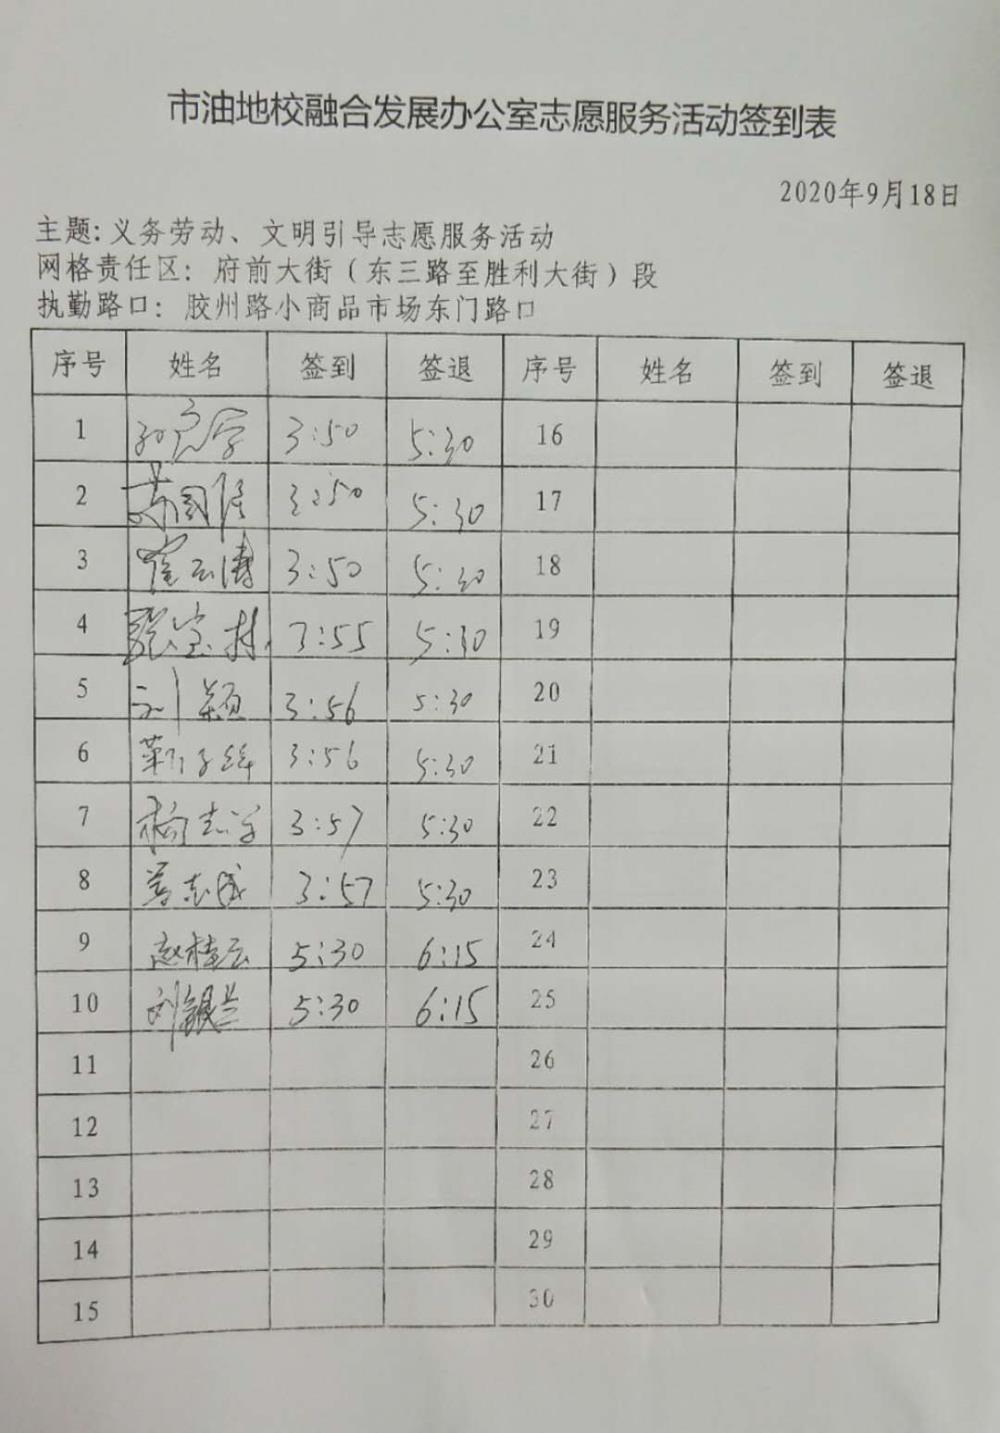 市油地校融合发展办公室志愿服务活动签到表
2020年9月18日
主题:义务劳动、文明引导志愿服务活动
网格责任区: 府前大街(东三路至胜利大街)段
执勤路口: 胶州路小商品市场东门路口
序号 姓名 签到 签退 序号 姓名 签到 签退
1 3:50 5:30 16
2 苏国隆 3:50 5:30 17
3 崔云涛 3:50 5:30 18
4 张宝村 3:55 5:30 19
5 刘颖 3:56 5:30 20
6 3:56 5:30 21
7 杨志学 3:57 5:30 22
8 志成 3:57 5:30 23
9 赵桂云 5:30 6:15 24
10 刘银兰 5:30 6:15 25
11 26
12 27
13 28
14 29
15 30